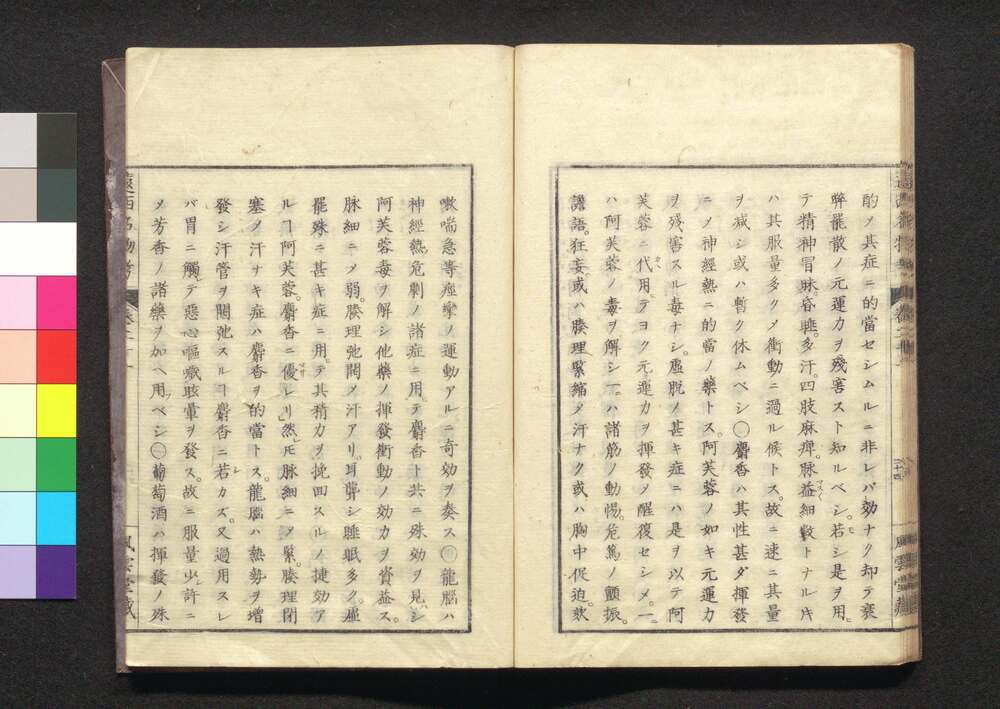 酌ノ其症ニ的當セシムルニ非レバ効ナク却テ衰
弊罷散ノ元運カヲ殘害スト知ルベシ。若シ是ヲ用ヒ
テ精神冒昧。昏睡。多汗。四肢麻痺。脉益細數トナル𪜈
ハ其服量多クメ衝動ニ過ル候トス。故ニ速ニ其量
ヲ減シ或ハ暫ク休ムベシ〇麝香ハ其性甚ダ揮發
ニメ神經熱ニ的當ノ藥トス。阿芙蓉ノ如キ元運力
ヲ殘害スル毒ナシ。虛脱ノ甚キ症ニハ是ヲ以テ阿
芙蓉ニ代用テヨク元運力ヲ揮發メ醒復セシメ。一ニ
ハ阿芙蓉ノ毒ヲ解シ一ハ諸筋ノ動惕。危篤ノ顫振。
譫語。狂妄。或ハ腠理緊縮メ汗ナク或ハ胸中促迫。欬
嗽喘急等痙攣ノ運動アルニ奇効ヲ奏ス〇龍腦ハ
神經熱。危劇ノ諸症ニ用テ麝香ト共ニ殊効ヲ見ハシ
阿芙蓉毒ヲ解シ他藥ノ揮發衝動ノ効力ヲ資益ス。
脉細ニメ弱。腠理弛開メ汗アリ。耳聾シ睡眠多ク。虛
罷殊ニ甚キ症ニ用テ其精力ヲ挽回スルノ捷効ア
ルヿ阿芙蓉。麝香ニ優レリ然𪜈脉細ニメ緊。腠理閉
塞メ汗ナキ症ハ麝香ヲ的當トス。龍腦ハ熱勢ヲ增
發シ汗管ヲ開弛スルヿ麝香ニ若カズ。又過用スレ
バ胃ニ觸テ惡心嘔噦眩暈ヲ發ス。故ニ服量少許ニ
メ芳香ノ諸藥ヲ加ヘ用ベシ〇葡萄酒ハ揮發ノ殊